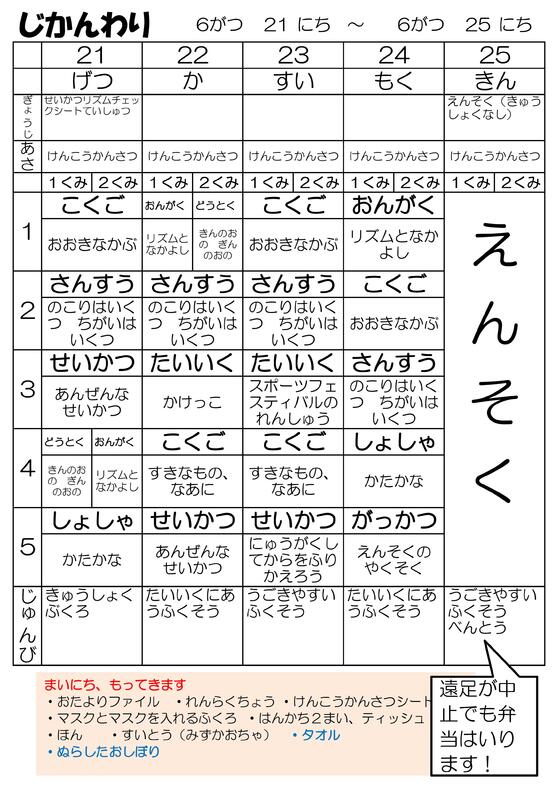 じかんわり　6がつ　21 にち　～　6がつ　25 にち
21　22　23　24　25
げつ　か　すい　もく　きん
ぎょうじ
せいかつリズムチェックシートていしゅつ
えんそく（きゅうしょくなし）
あさ
けんこうかんさつ　けんこうかんさつ　けんこうかんさつ　けんこうかんさつ　けんこうかんさつ
1くみ　2くみ　1くみ　2くみ　1くみ　2くみ　1くみ　2くみ　1くみ　2くみ
1
こくご　おんがく　どうとく　こくご　おんがく
おおきなかぶ　リズムとなかよし　きんのおの　ぎんのおの　おおきなかぶ　リズムとなかよし
2
さんすう　さんすう　さんすう　こくご
のこりはいくつ　ちがいはいくつ　のこりはいくつ　ちがいはいくつ　のこりはいくつ　ちがいはいくつ　おおきなかぶ
3
せいかつ　たいいく　たいいく　さんすう
あんぜんなせいかつ　かけっこ　スポーツフェスティバルのれんしゅう　のこりはいくつ　ちがいはいくつ
4
どうとく　おんがく　こくご　こくご　しょしゃ
きんのおの　ぎんのおの　リズムとなかよし　すきなもの、なあに　すきなもの、なあに　かたかな
5
しょしゃ　せいかつ　せいかつ　がっかつ
かたかな　あんぜんなせいかつ　にゅうがくしてからをふりかえろう　えんそくのやくそく
えんそく
じゅんび
きゅうしょくぶくろ　たいいくにあうふくそう　うごきやすいふくそう　たいいくにあうふくそう　うごきやすいふくそう
べんとう
まいにち、もってきます
・おたよりファイル　・れんらくちょう　・けんこうかんさつシート
・マスクとマスクを入れるふくろ　・はんかち2まい、ティッシュ
・ほん　・すいとう（みずかおちゃ）　・タオル
・ぬらしたおしぼり
遠足が中
止でも弁
当はいり
ます！